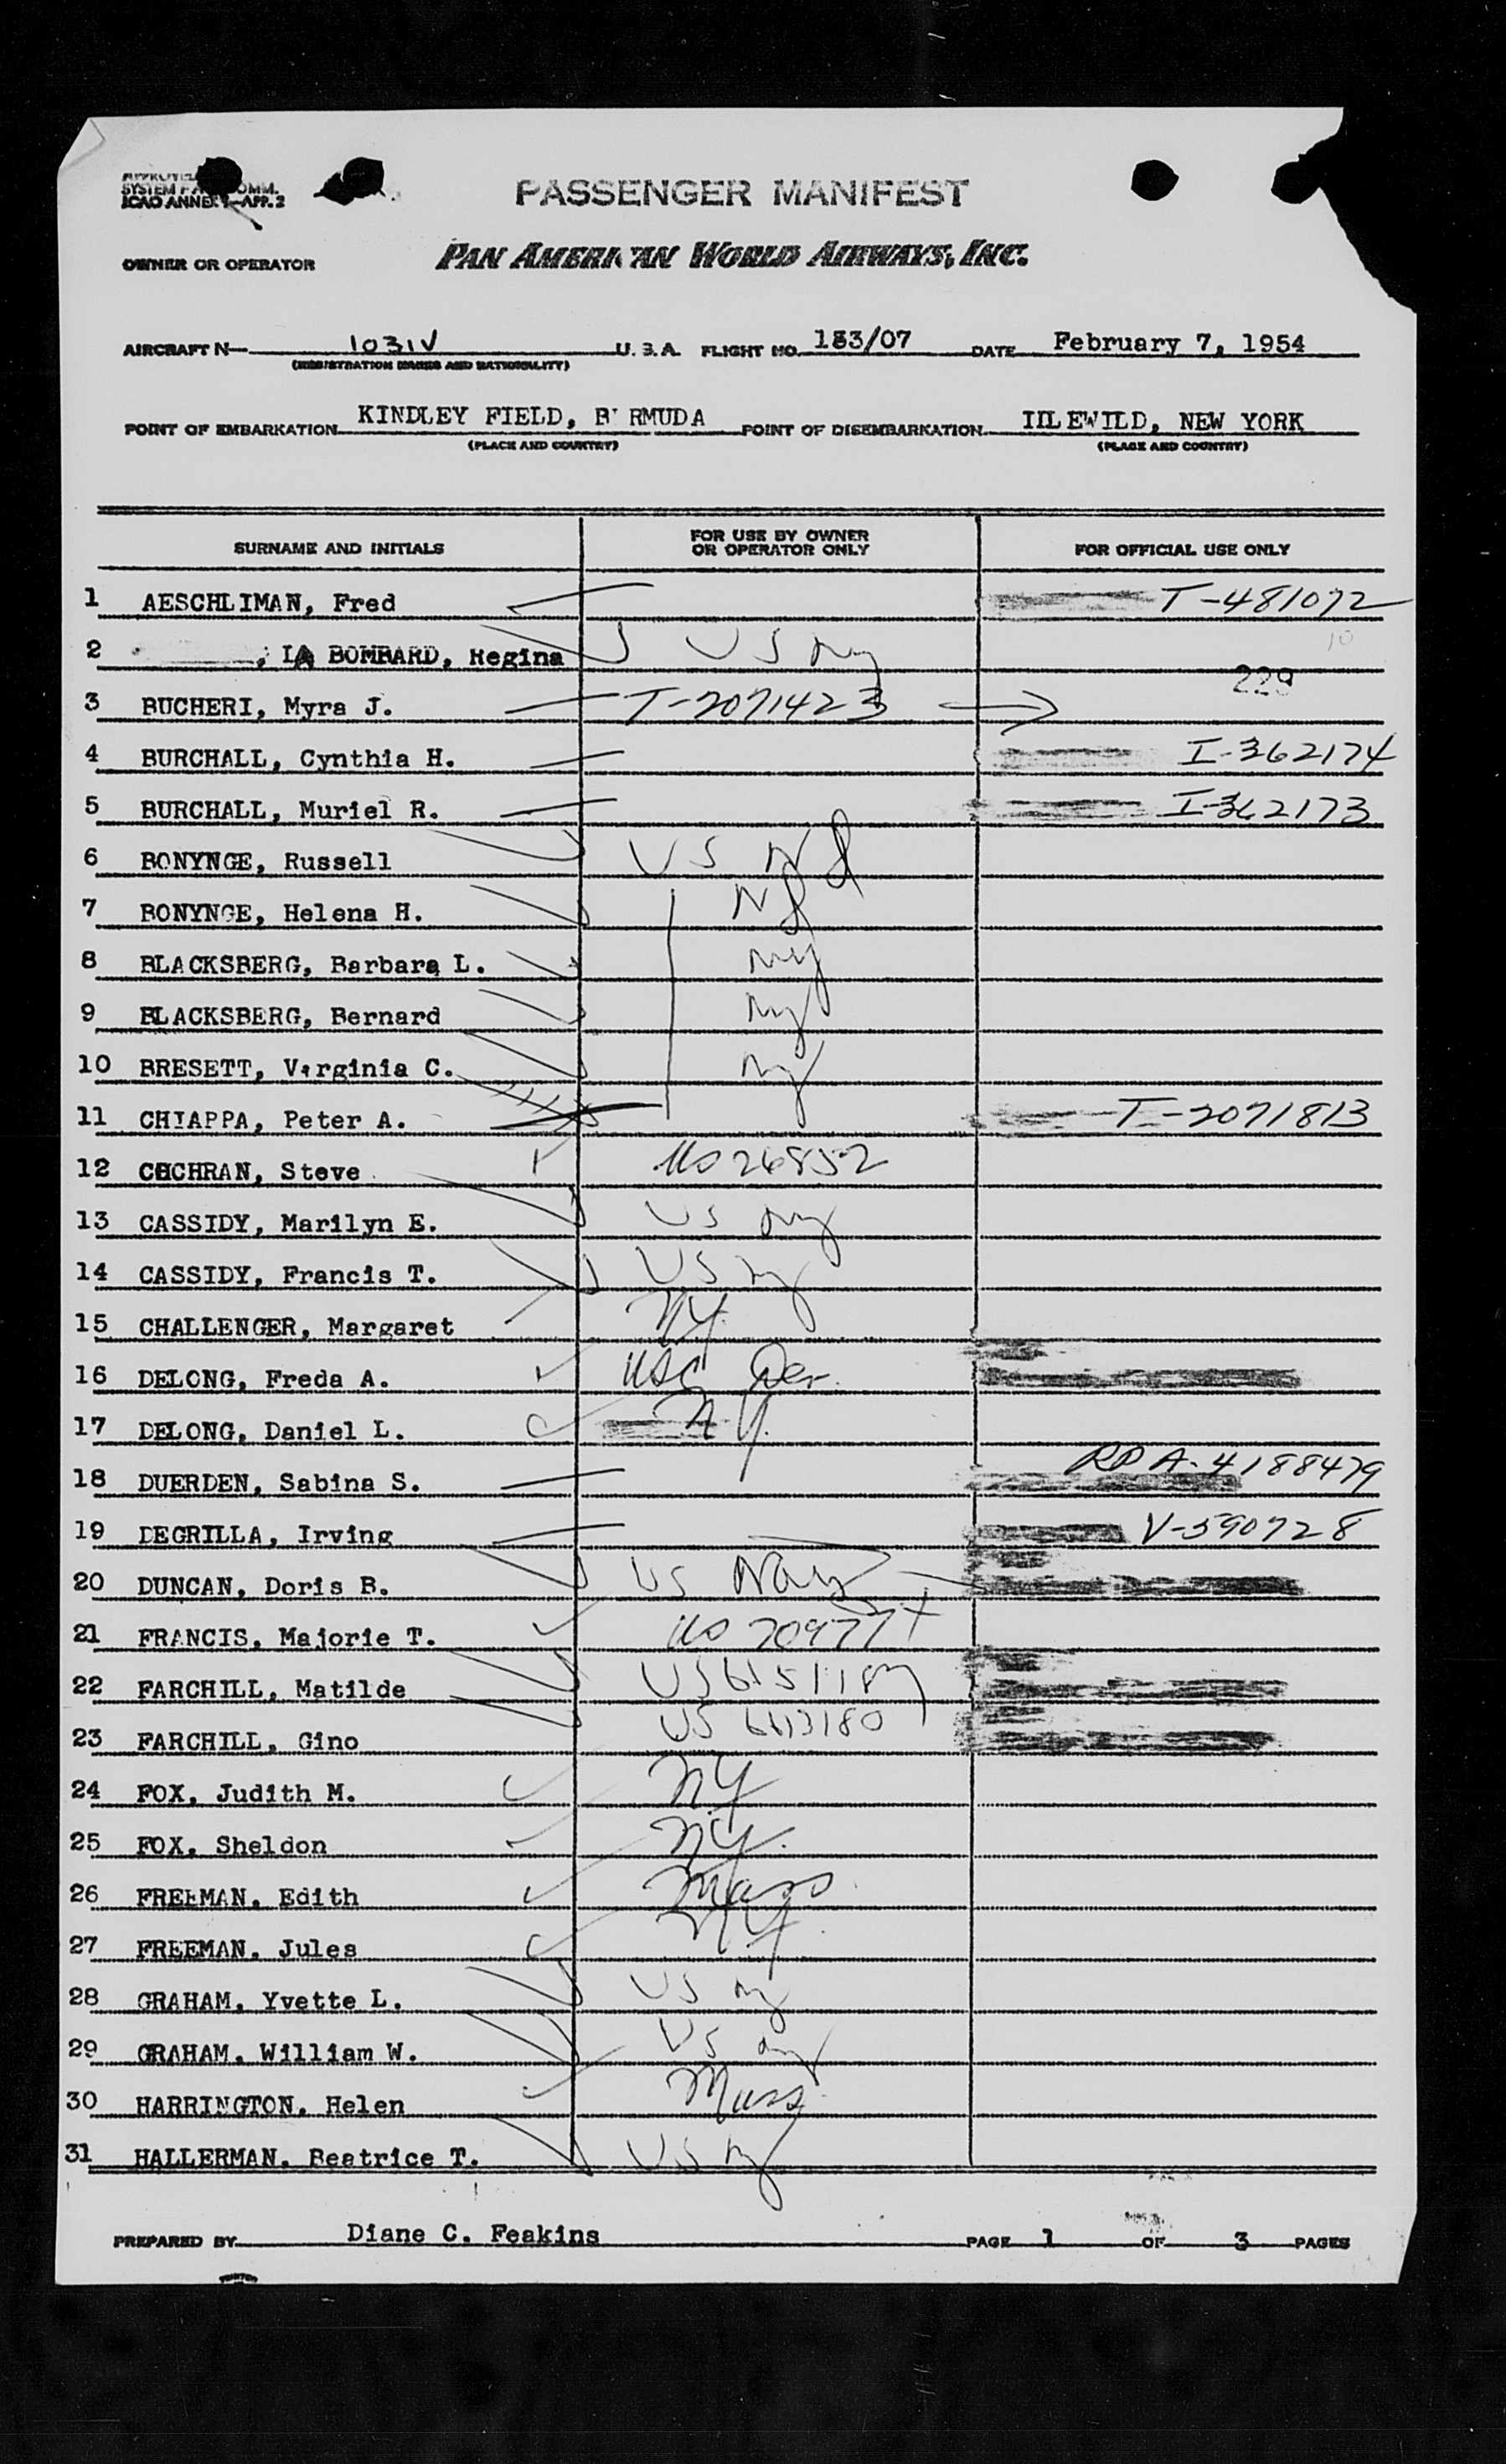 SYSTEM
ICAO ANNEX 9—APP. 2
PASSENGER MANIFEST
OWNER OR OPERATOR PAN AMERICAN WORLD AIRWAYS, INC.
AIRCRAFT N— 1031V U.S.A. FLIGHT NO. 183/07 DATE February 7, 1954
(REGISTRATION MARKS AND NATIONALITY)
POINT OF EMBARKATION KINDLEY FIELD, B RMUDA POINT OF DISEMBARKATION IILEWILD, NEW YORK
(PLACE AND COUNTRY) (PLACE AND COUNTRY)
SURNAME AND INITIALS FOR USE BY OWNER OR OPERATOR ONLY FOR OFFICIAL USE ONLY
1 AESCHLIMAN, Fred T-481072
2 , LA BOMBARD, Regina US NY 10
229
3 BUCHERI, Myra J. T-2071423
4 BURCHALL, Cynthia H. I-362174
5 BURCHALL, Muriel R. I-362173
6 BONYNGE, Russell US NJ
7 BONYNGE, Helena H. NJ
8 BLACKSBERG, Barbara L. NY
9 BLACKSBERG, Bernard NY
10 BRESETT, Virginia C. NY
11 CHIAPPA, Peter A. T-2071813
12 COCHRAN, Steve US 26852
13 CASSIDY, Marilyn E. US NY
14 CASSIDY, Francis T. US NY
15 CHALLENGER, Margaret NY
16 DELONG, Freda A. USC Der.
17 DELONG, Daniel L. NY.
18 DUERDEN, Sabina S. RP A-4188479
19 DEGRILLA, Irving V-590728
20 DUNCAN, Doris B. US Navy
21 FRANCIS, Majorie T. US 70977
22 FARCHILL, Matilde
23 FARCHILL, Gino
24 FOX, Judith M. NY
25 FOX, Sheldon NY.
26 FREEMAN, Edith Mass.
27 FREEMAN, Jules NY
28 GRAHAM, Yvette L. US NY
29 GRAHAM, William W. US NY
30 HARRINGTON, Helen Mass.
31 HALLERMAN, Beatrice T. US NY
PREPARED BY Diane C. Feakins PAGE 1 OF 3 PAGES